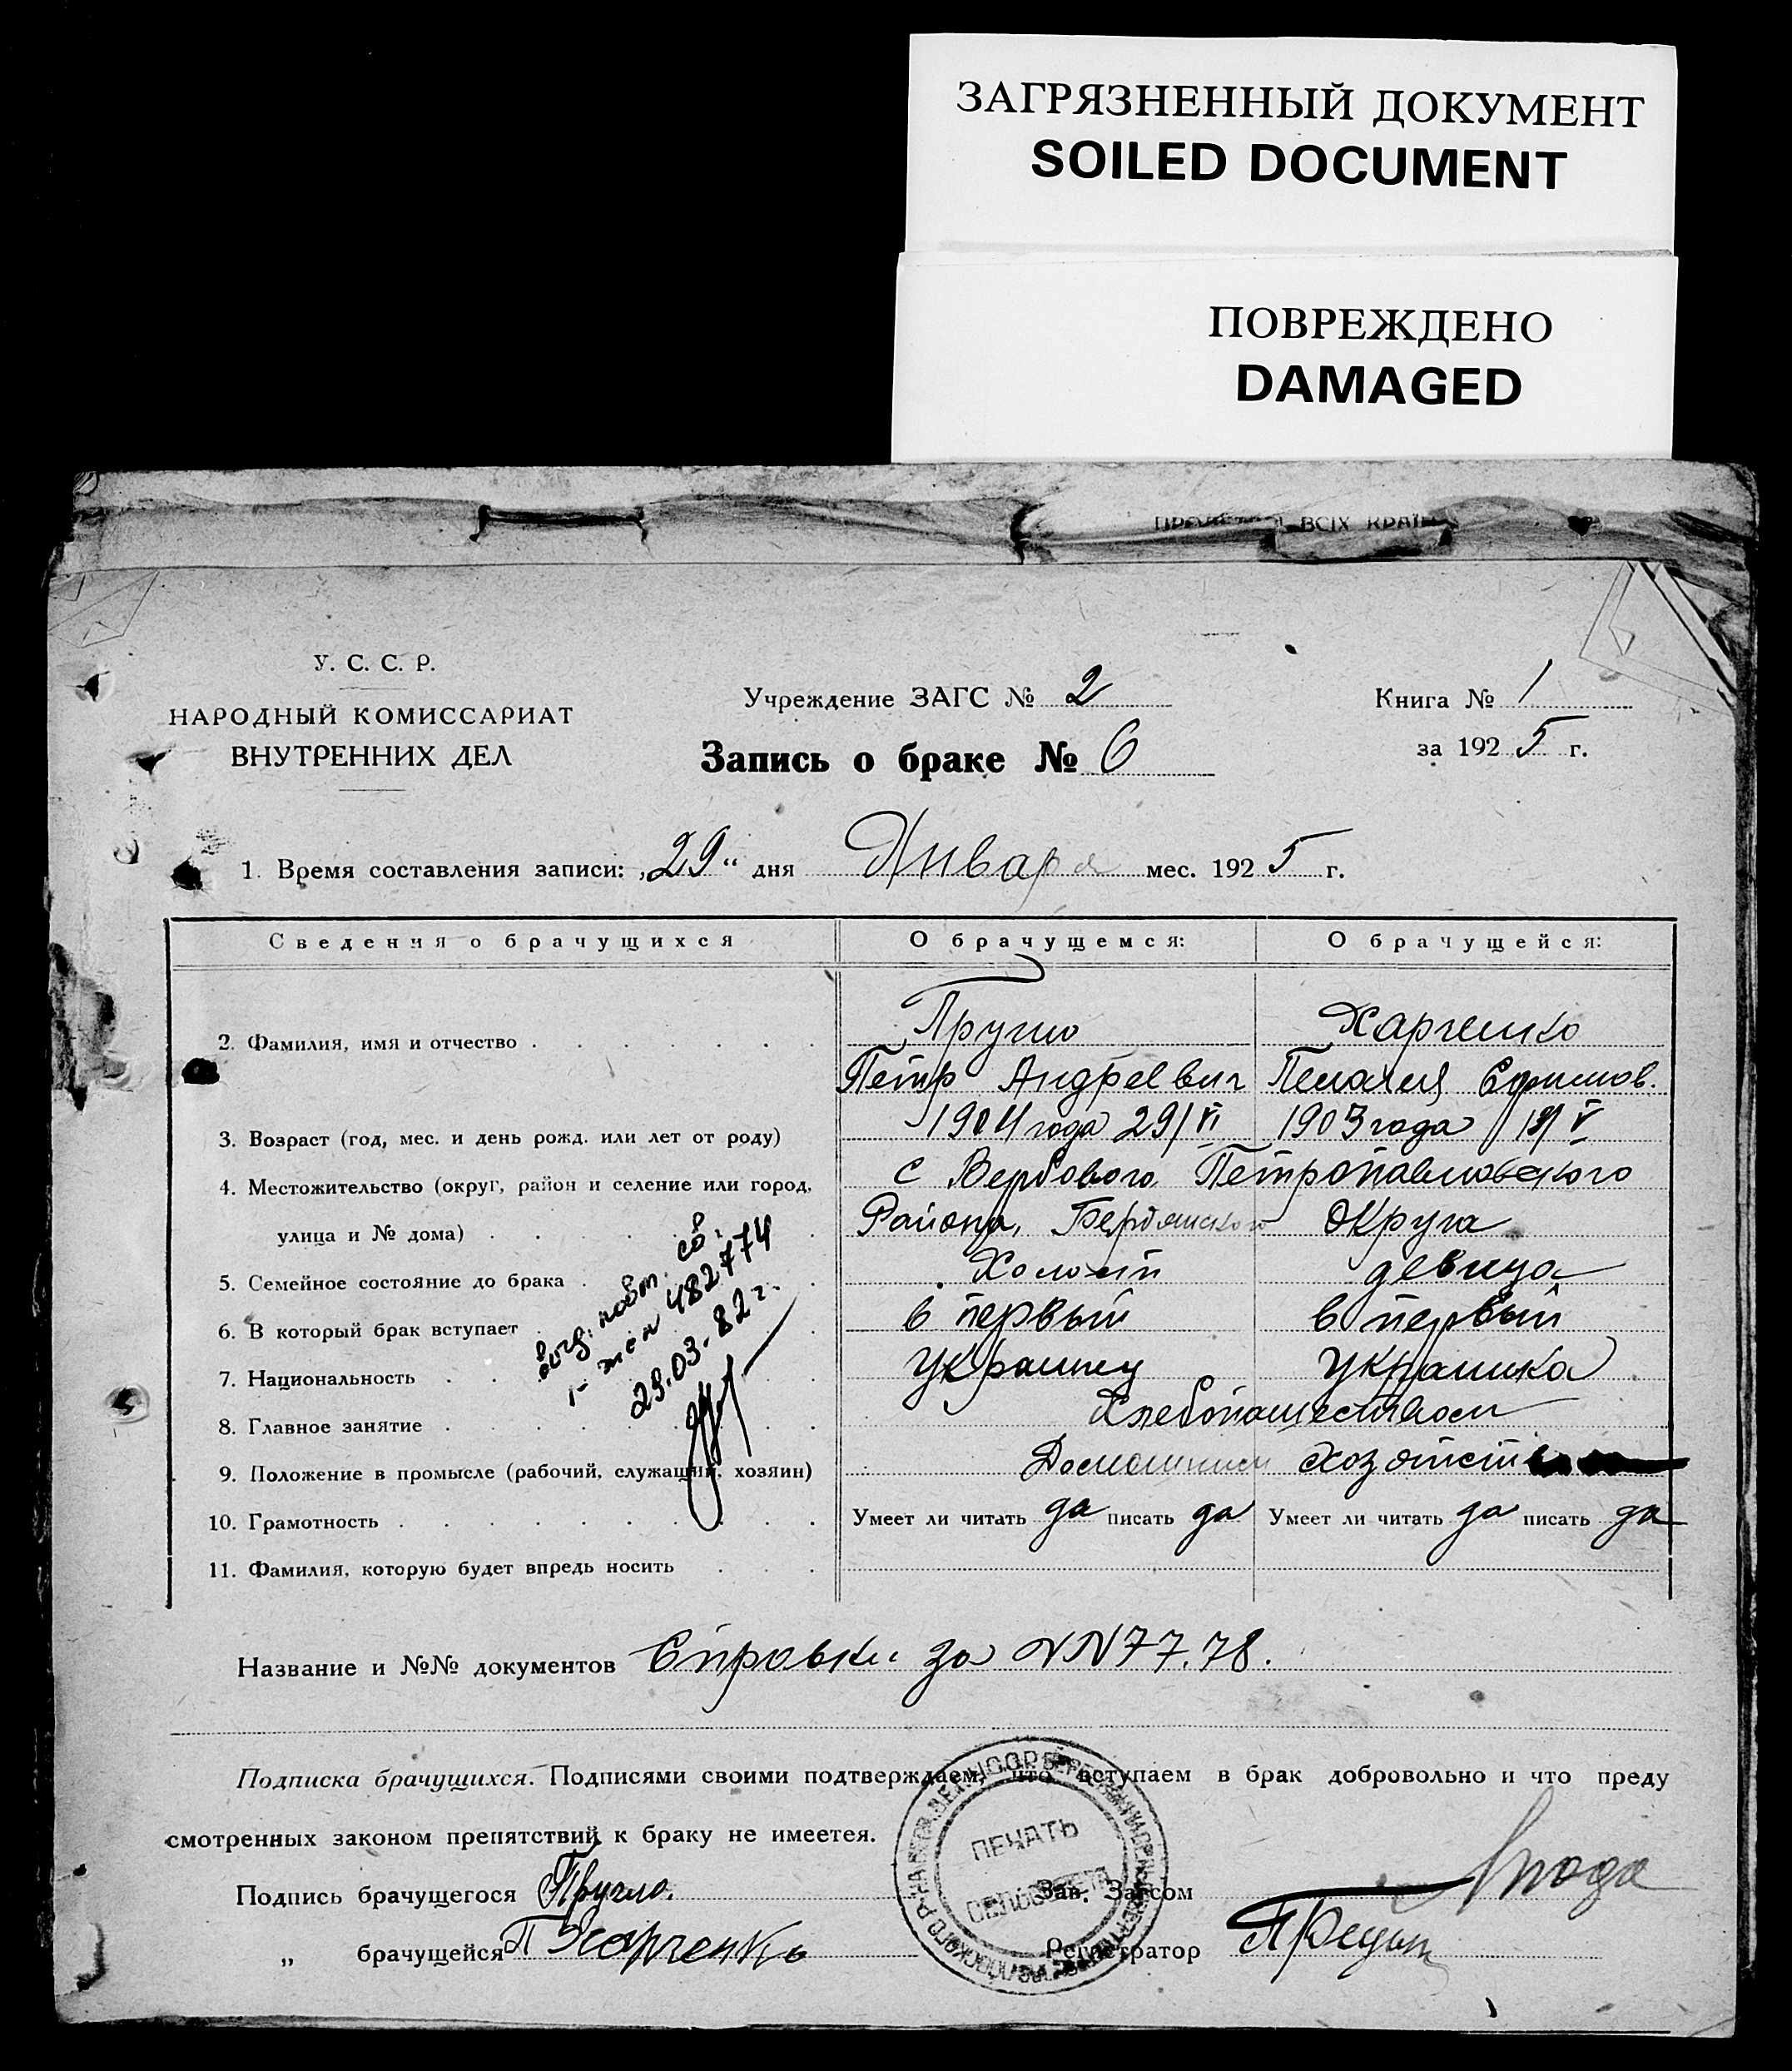 ЗАГРЯЗНЕННЫЙ ДОКУМЕНТ
SOILED DOCUMENT
ПОВРЕЖДЕНО
DAMAGED
ВСІХ КРАЇН
У. С. С. Р.
НАРОДНЫЙ КОМИССАРИАТ
ВНУТРЕННИХ ДЕЛ
Учреждение ЗАГС № 2
Запись о браке № 6
Книга № 1
за 1925 г.
1. Время составления записи: „29“ дня Января мес. 1925 г.
Сведения о брачущихся О брачущемся: О брачущейся:
2. Фамилия, имя и отчество Пругло Харченко
Петр Андреевич Пелагея Ефимов.
3. Возраст (год, мес. и день рожд. или лет от роду) 1904 года 29/VI 1903 года V
4. Местожительство (округ, район и селение или город, с Вербового Петропавловского
улица и № дома) Района, Бердянского Округа
5. Семейное состояние до брака Холост девица
6. В который брак вступает в первый в первый
7. Национальность Украинец Украинка
8. Главное занятие Хлебопашеством
9. Положение в промысле (рабочий, служащий, хозяин) Домашнем хозяйств
10. Грамотность Умеет ли читать да писать да Умеет ли читать да писать да
11. Фамилия, которую будет впредь носить
выд. повт. св.
482774
29.03.82 г.
Название и №№ документов Справки за NN 77.78.
Подписка брачущихся. Подписями своими подтверждаем, что вступаем в брак добровольно и что преду
смотренных законом препятствий к браку не имеетея.
ПЕЧАТЬ
СЕЛЬСОВЕТА
Подпись брачущегося Пругло. Зав. Загсом
„ брачущейся П Харченко Регистратор